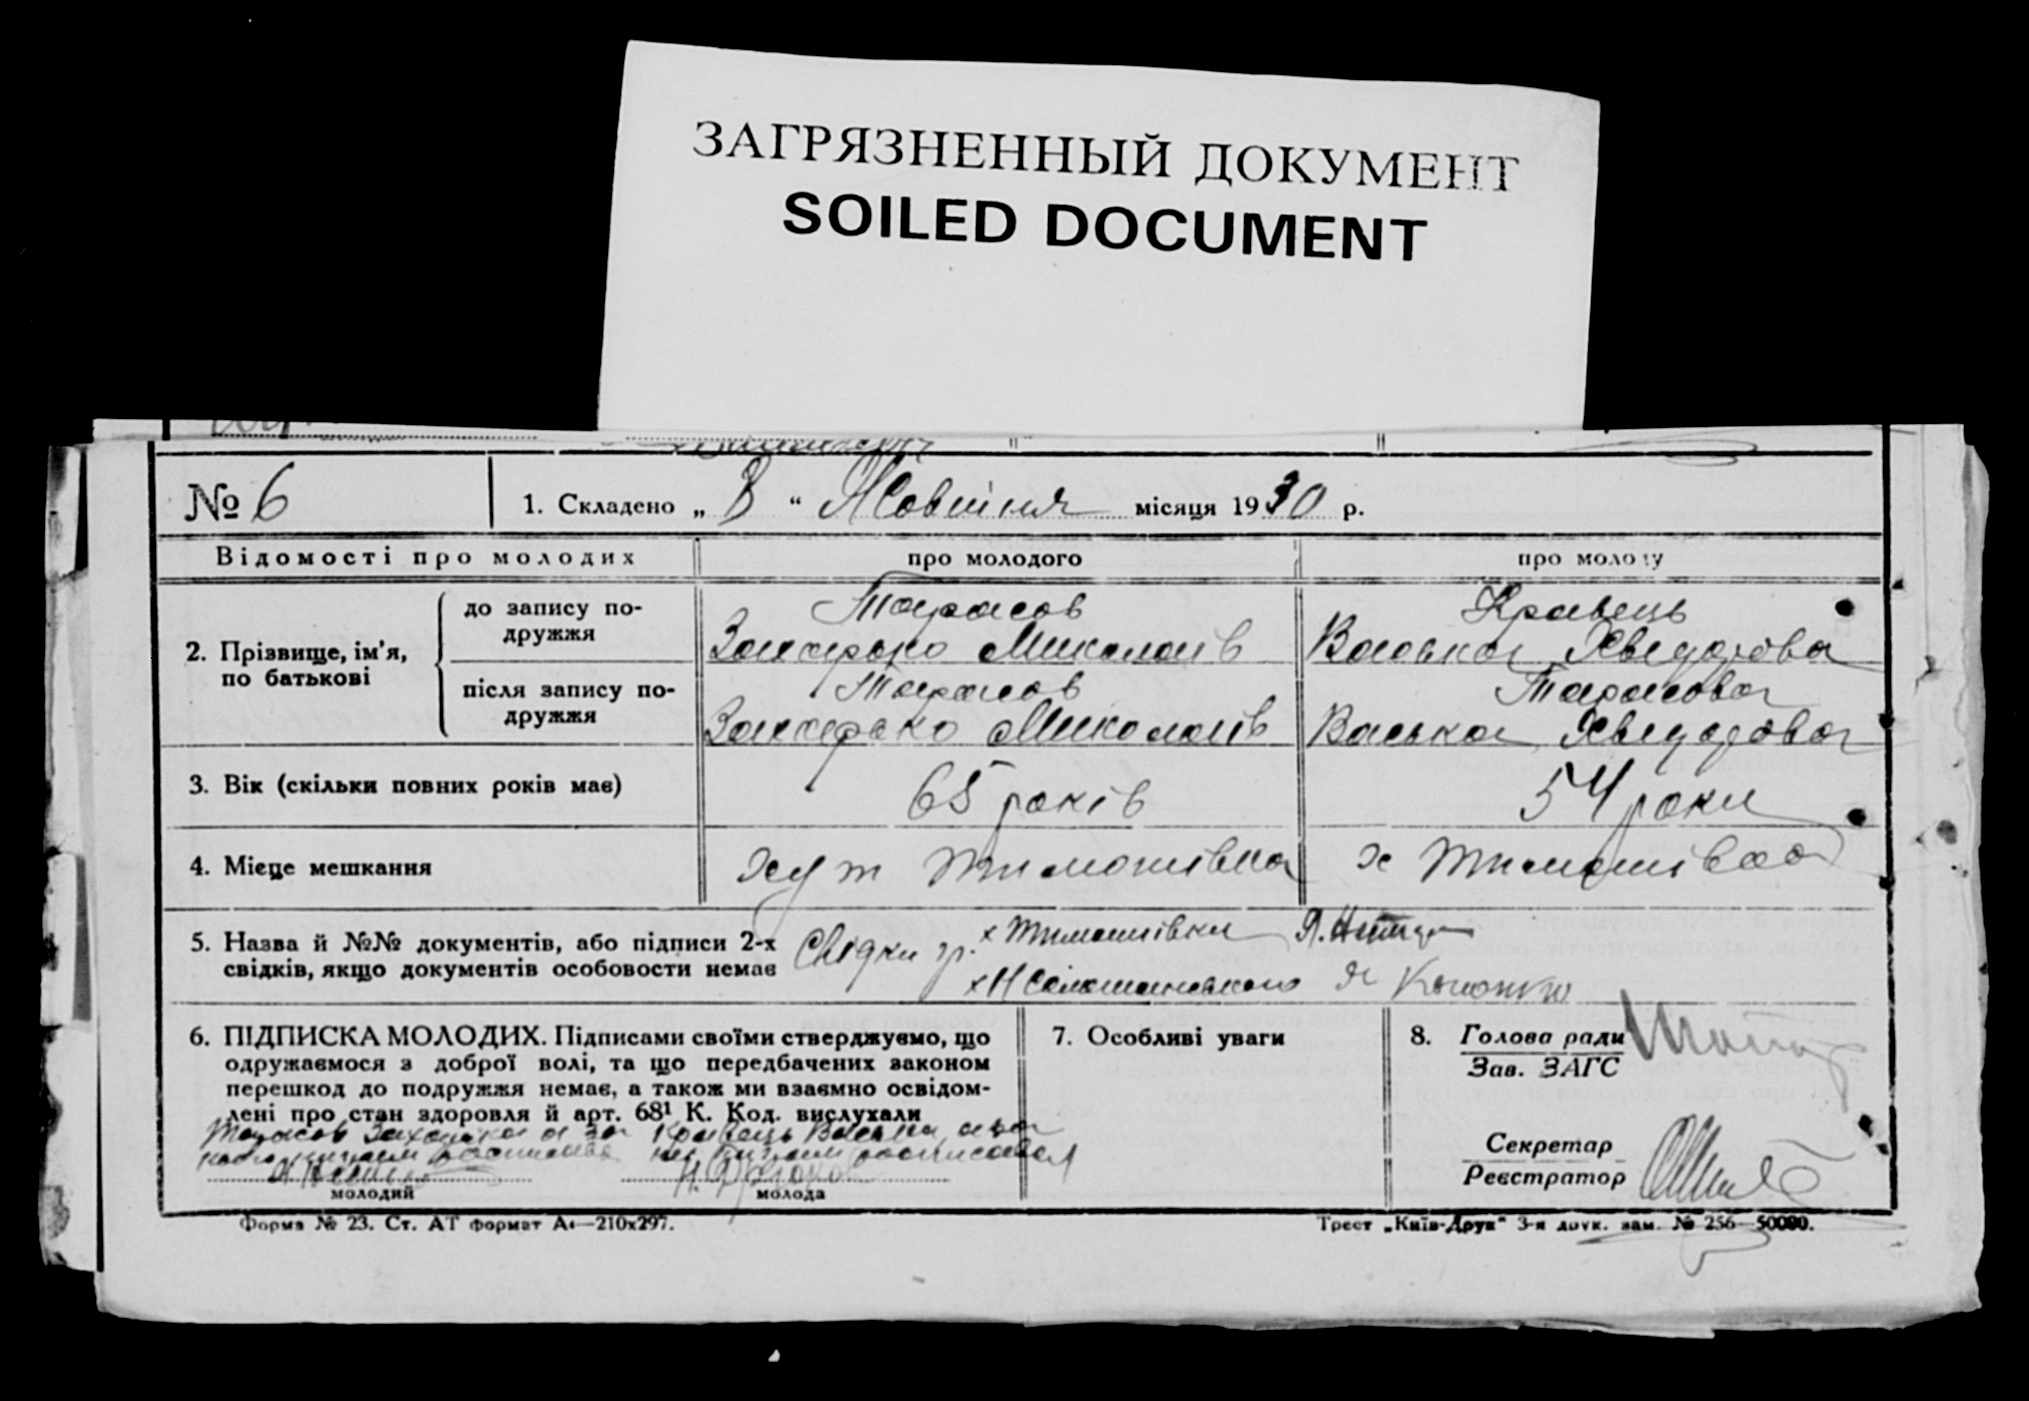 ЗАГРЯЗНЕННЫЙ ДОКУМЕНТ
SOILED DOCUMENT
№ 6
1. Складено „ “ Жовтня місяця 1930 р.
Відомості про молодих
про молодого
про молоду
2. Прізвище, ім'я, по батькові
до запису подружжя
Тарасов
Захарько Миколаїв
Кравець
Васька Хведорова
після запису подружжя
Тарасов
Захарько Миколаїв
Тарасова
Васька Хведорова
3. Вік (скільки повних років має)
65 років
54 роки
4. Місце мешкання
хут Тимошівка
х Тимошівка
5. Назва й №№ документів, або підписи 2-х
свідків, якщо документів особовости немає
Свідки гр. х Тимошівки
х Н
6. ПІДПИСКА МОЛОДИХ. Підписами своїми стверджуємо, що
одружаємося з доброї волі, та що передбачених законом
перешкод до подружжя немає, а також ми взаємно освідом-
лені про стан здоровля й арт. 68¹ К. Код. вислухали
Тарасов Захарько а за
Кравець Васька а за
молодий
молода
7. Особливі уваги
8. Голова ради
Зав. ЗАГС
Секретар
Реєстратор
Форма № 23. Ст. АТ формат А4—210х297.
Трест „Київ-Друк“ 3-я друк. зам. № 256—50000.